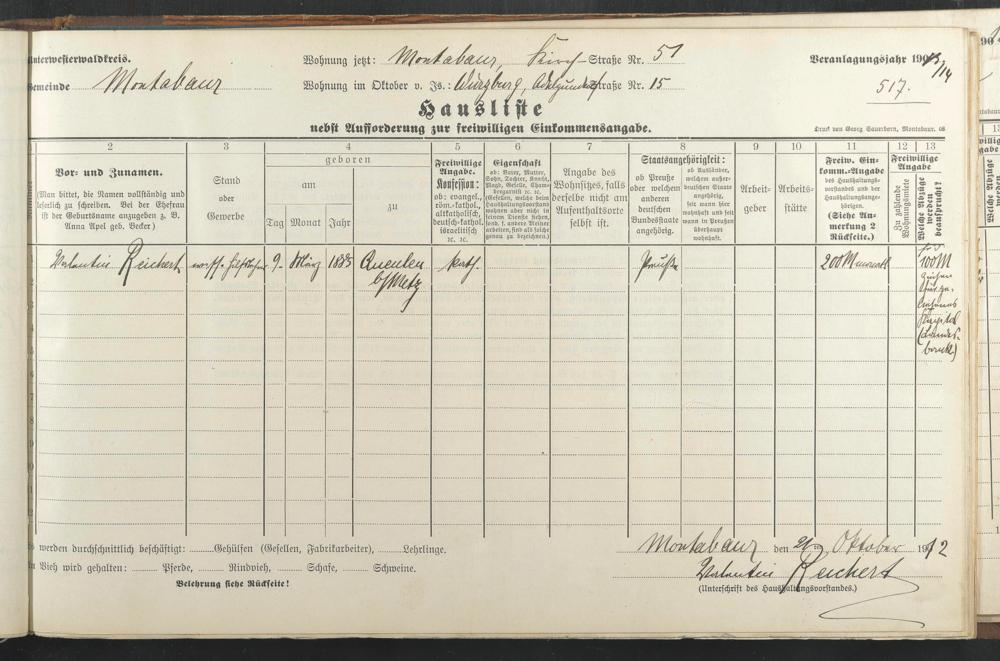 Unterwesterwaldkreis.
Wohnung jetzt: Montabaur, Kirch-Straße Nr. 51
Veranlagungsjahr 1913/14
Gemeinde Montabaur
Wohnung im Oktober v. Js.: Würzburg, Adelgundenstraße Nr. 15
517.
Hausliste
nebst Aufforderung zur freiwilligen Einkommensangabe.
Druck von Georg Sauerborn, Montabaur. 08
2 3 4 5 6 7 8 9 10 11 12 13
Vor- und Zunamen.
(Man bittet, die Namen vollständig und
leserlich zu schreiben. Bei der Ehefrau
ist der Geburtsname anzugeben z. B.
Anna Apel geb. Becker)
Stand
oder
Gewerbe
geboren
am
zu
Tag Monat Jahr
Freiwillige
Angabe.
Konfession:
ob: evangel.,
röm.-kathol.,
altkatholisch,
deutsch-kathol.
israelitisch
ec. ec.
Eigenschaft
ob: Vater, Mutter,
Sohn, Tochter, Knecht,
Magd, Geselle, Cham-
bergarnist ec. ec.
(Gesellen, welche beim
Haushaltungsvorstand
wohnen aber nicht in
seinem Dienste stehen,
sond. f. andere Meister
arbeiten, sind als solche
genau zu bezeichnen).
Angabe des
Wohnsitzes, falls
derselbe nicht am
Aufenthaltsorte
selbst ist.
Staatsangehörigkeit:
ob Preuße
oder welchem
anderen
deutschen
Bundesstaate
angehörig.
ob Ausländer,
welchem außer-
deutschen Staate
angehörig,
seit wann hier
wohnhaft und seit
wann in Preußen
überhaupt
wohnhaft.
Arbeit-
geber
Arbeits-
stätte
Freiw. Ein-
komm.-Angabe
des Haushaltungs-
vorstandes und der
Haushaltungsange-
hörigen.
(Siehe An-
merkung 2
Rückseite.)
Freiwillige
Angabe
Zu zahlende
Wohnungsmiete
Welche Abzüge
werden
beansprucht?
Valentin Reichert
9. März 1885
Queuleu
b/Metz
kath.
Preuße
200 M monatl.
100 M
Zinsen
für ge-
liehenes
Kapital
(Landes-
bank)
Es werden durchschnittlich beschäftigt: Gehülfen (Gesellen, Fabrikarbeiter), Lehrlinge.
An Vieh wird gehalten: Pferde, Rindvieh, Schafe, Schweine.
Belehrung siehe Rückseite!
Montabaur den 21ten Oktober 1912
Valentin Reichert
(Unterschrift des Haushaltungsvorstandes.)